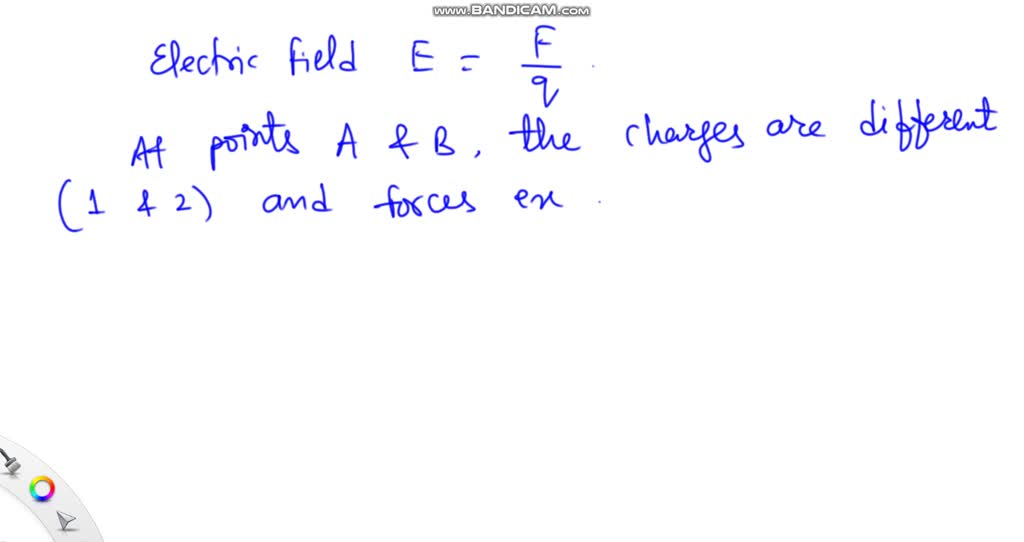 www.BANDICAM.com
Electric field E = F/q
At points A & B, the charges are different
(1 & 2) and forces ex